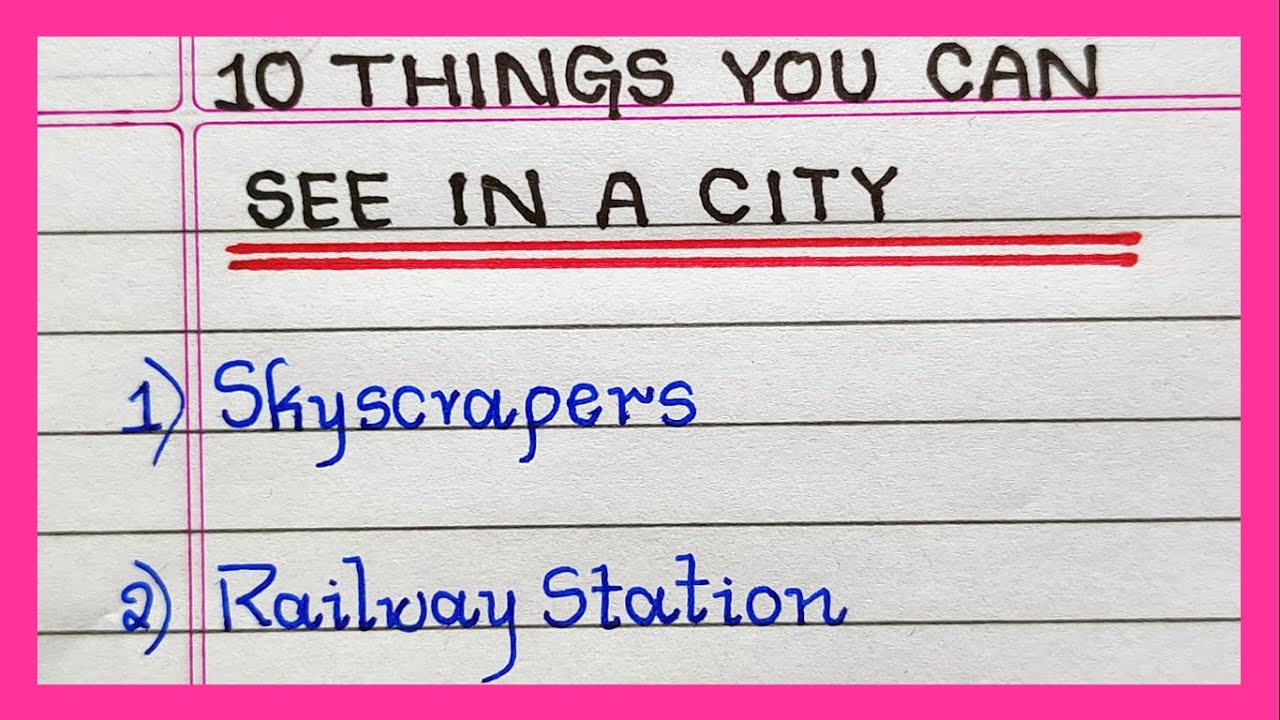 10 THINGS YOU CAN
SEE IN A CITY
1) Skyscrapers
2) Railway Station